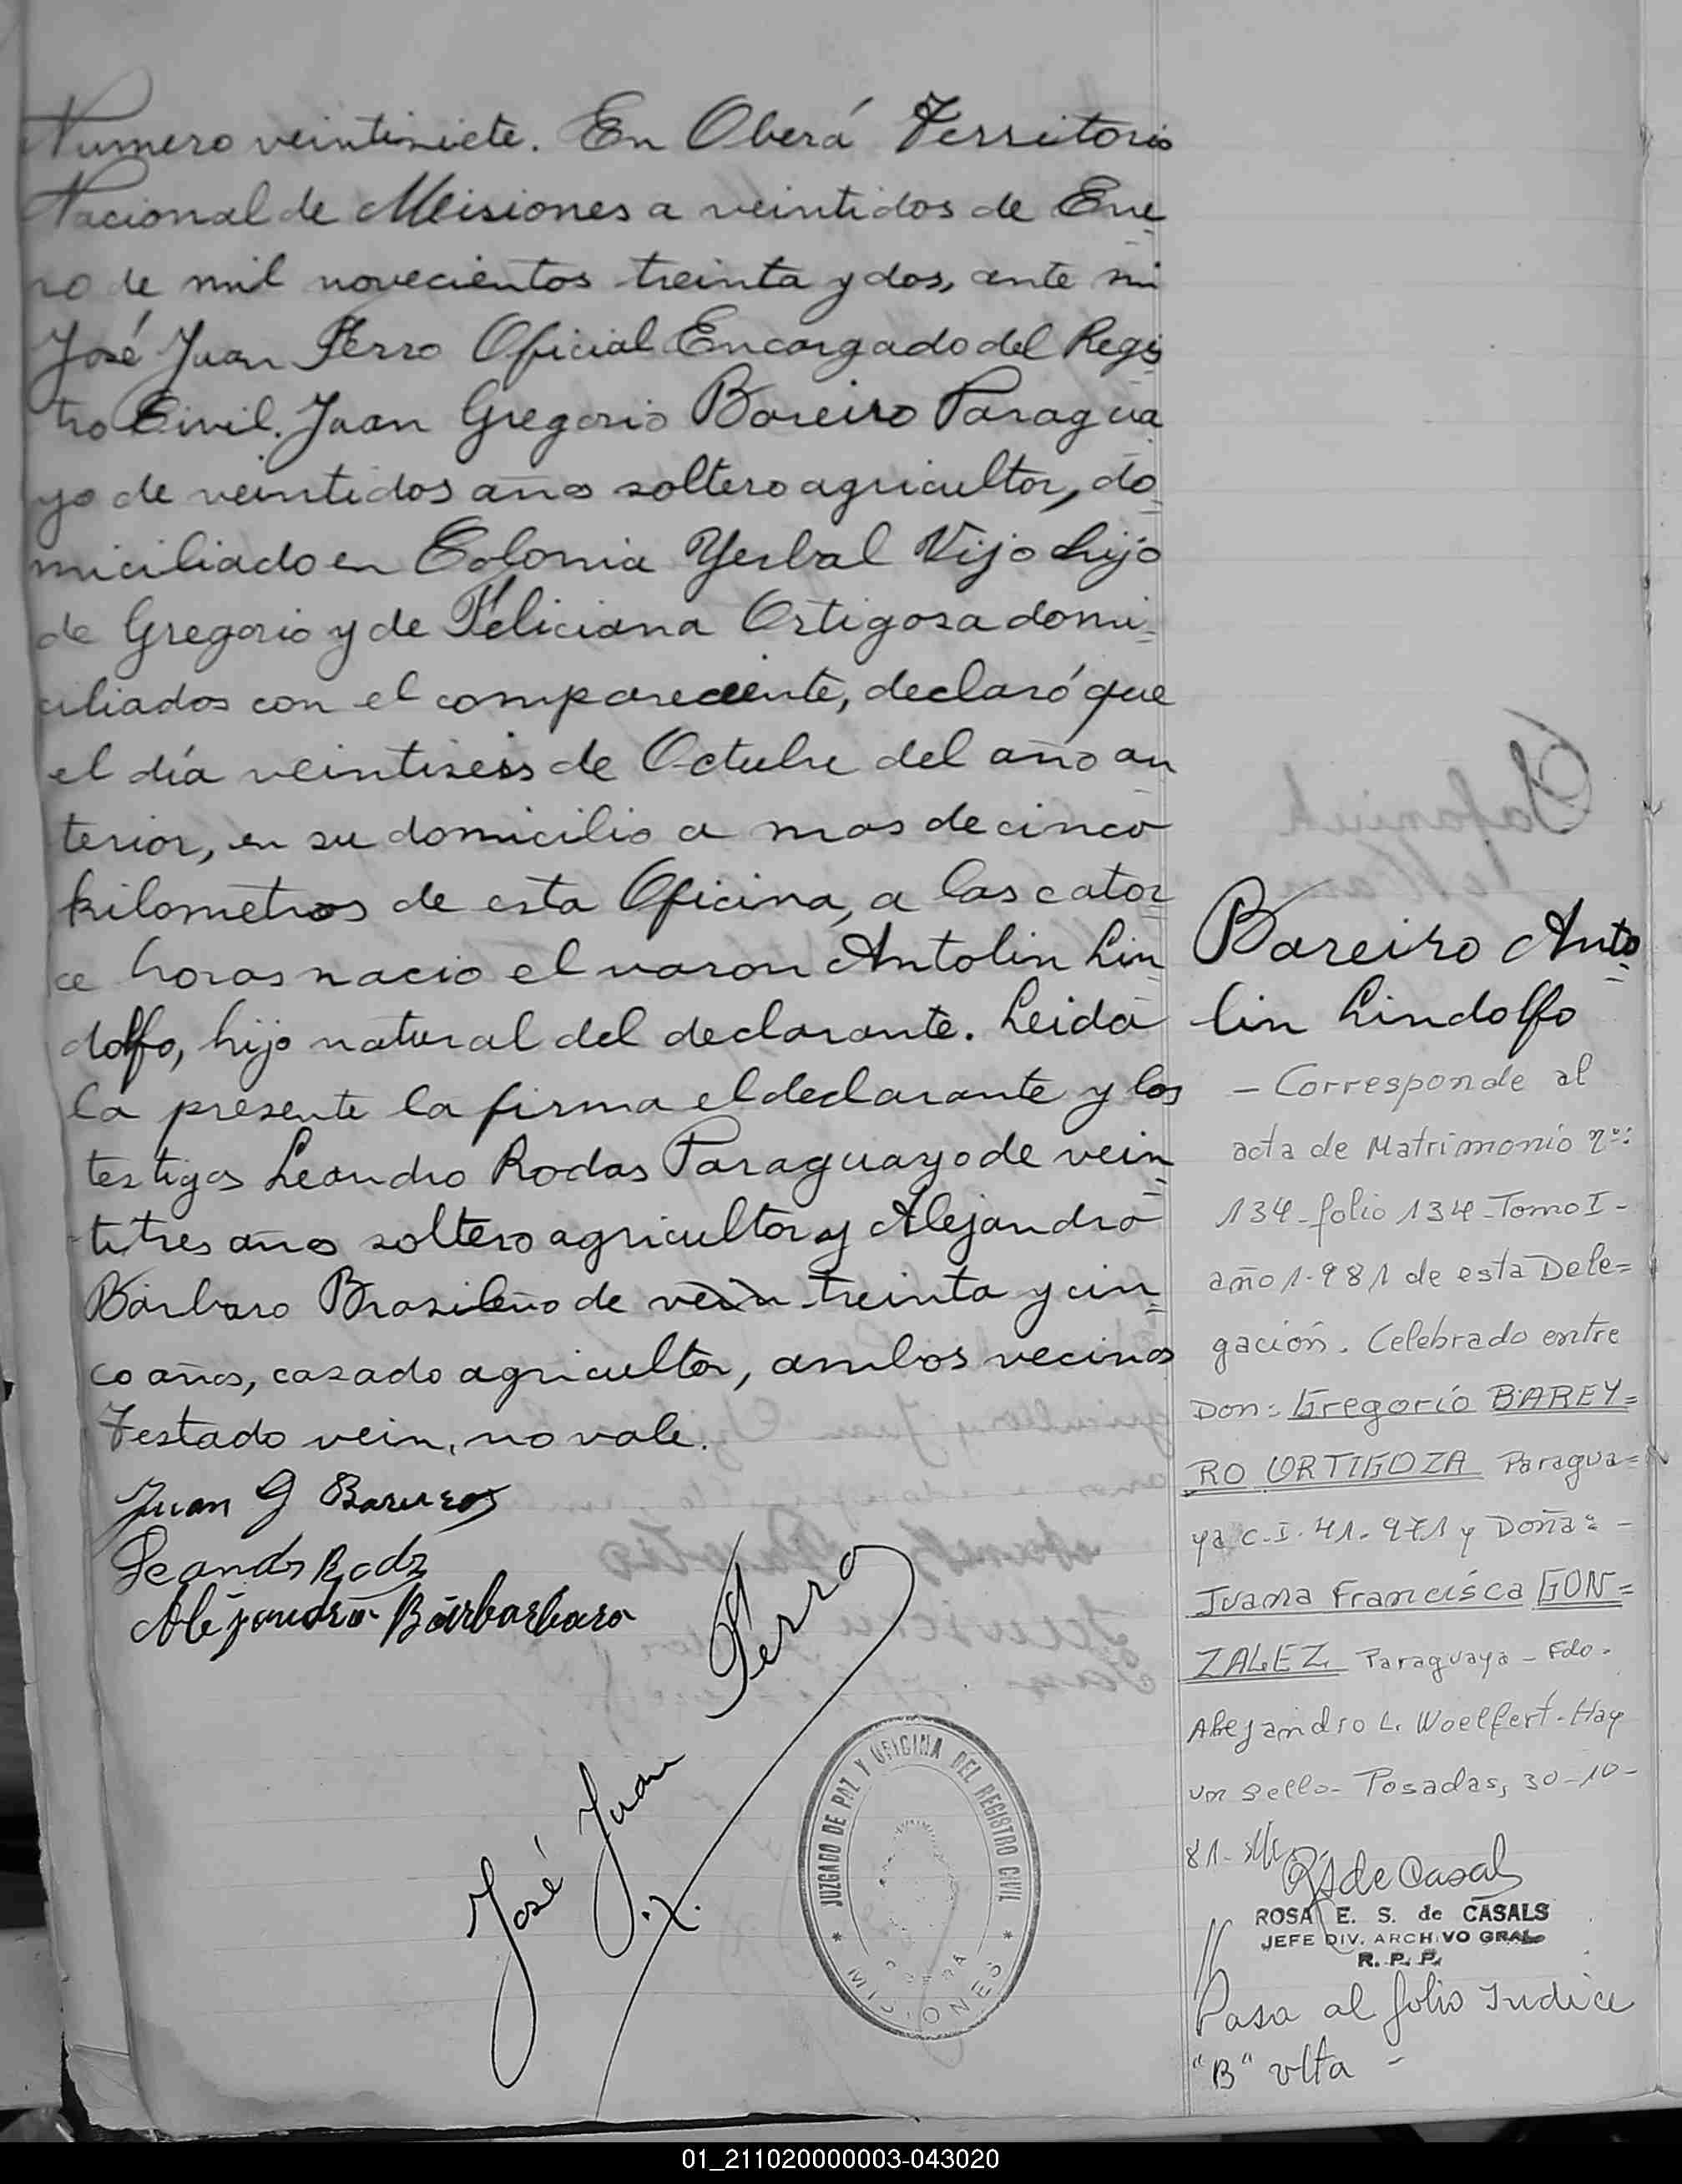 Numero veintisiete. En Oberá Territorio
Nacional de Misiones a veintidos de Ene
ro de mil novecientos treinta y dos, ante mi
José Juan Ferro Oficial Encargado del Regis
tro Civil. Juan Gregorio Bareiro Paragua
yo de veintidos años soltero agricultor, do
miciliado en Colonia Yerbal Vijo hijo
de Gregorio y de Feliciana Ortigosa domi
ciliados con el compareciente, declaró que
el día veintiseis de Octubre del año an
terior, en su domicilio a mas de cinco
kilometros de esta Oficina, a las cator
ce horas nacio el varon Antolin Lin
dolfo, hijo natural del declarante. Leida
la presente la firma el declarante y los
testigos Leandro Rodas Paraguayo de vein
titres años soltero agricultor y Alejandro
Bárbaro Brasileño de vein treinta y cin
co años, casado agricultor, ambos vecinos
Testado vein, no vale.
Juan G Bareiros
Leandr Rods
Alejandro Bárbarbaro
José Juan Ferro
JUZGADO DE PAZ Y OFICINA DEL REGISTRO CIVIL
* OBERA *
MISIONES
Bareiro Anto
lin Lindolfo
- Corresponde al
acta de Matrimonio nº:
134-folio 134-Tomo I-
año 1.981 de esta Dele=
gación. Celebrado entre
Don: Gregorio BAREY=
RO ORTIGOZA Paragua=
ya C.I. 41.971 y Doña: -
Juana Francisca GON=
ZALEZ Paraguaya - Fdo.
Alejandro L. Woelfert-Hay
un sello- Posadas, 30-10-
81-
R S de Casals
ROSA E. S. de CASALS
JEFE DIV. ARCHIVO GRAL
R. P. P.
Pasa al folio Indice
"B" vlta -
01_211020000003-043020